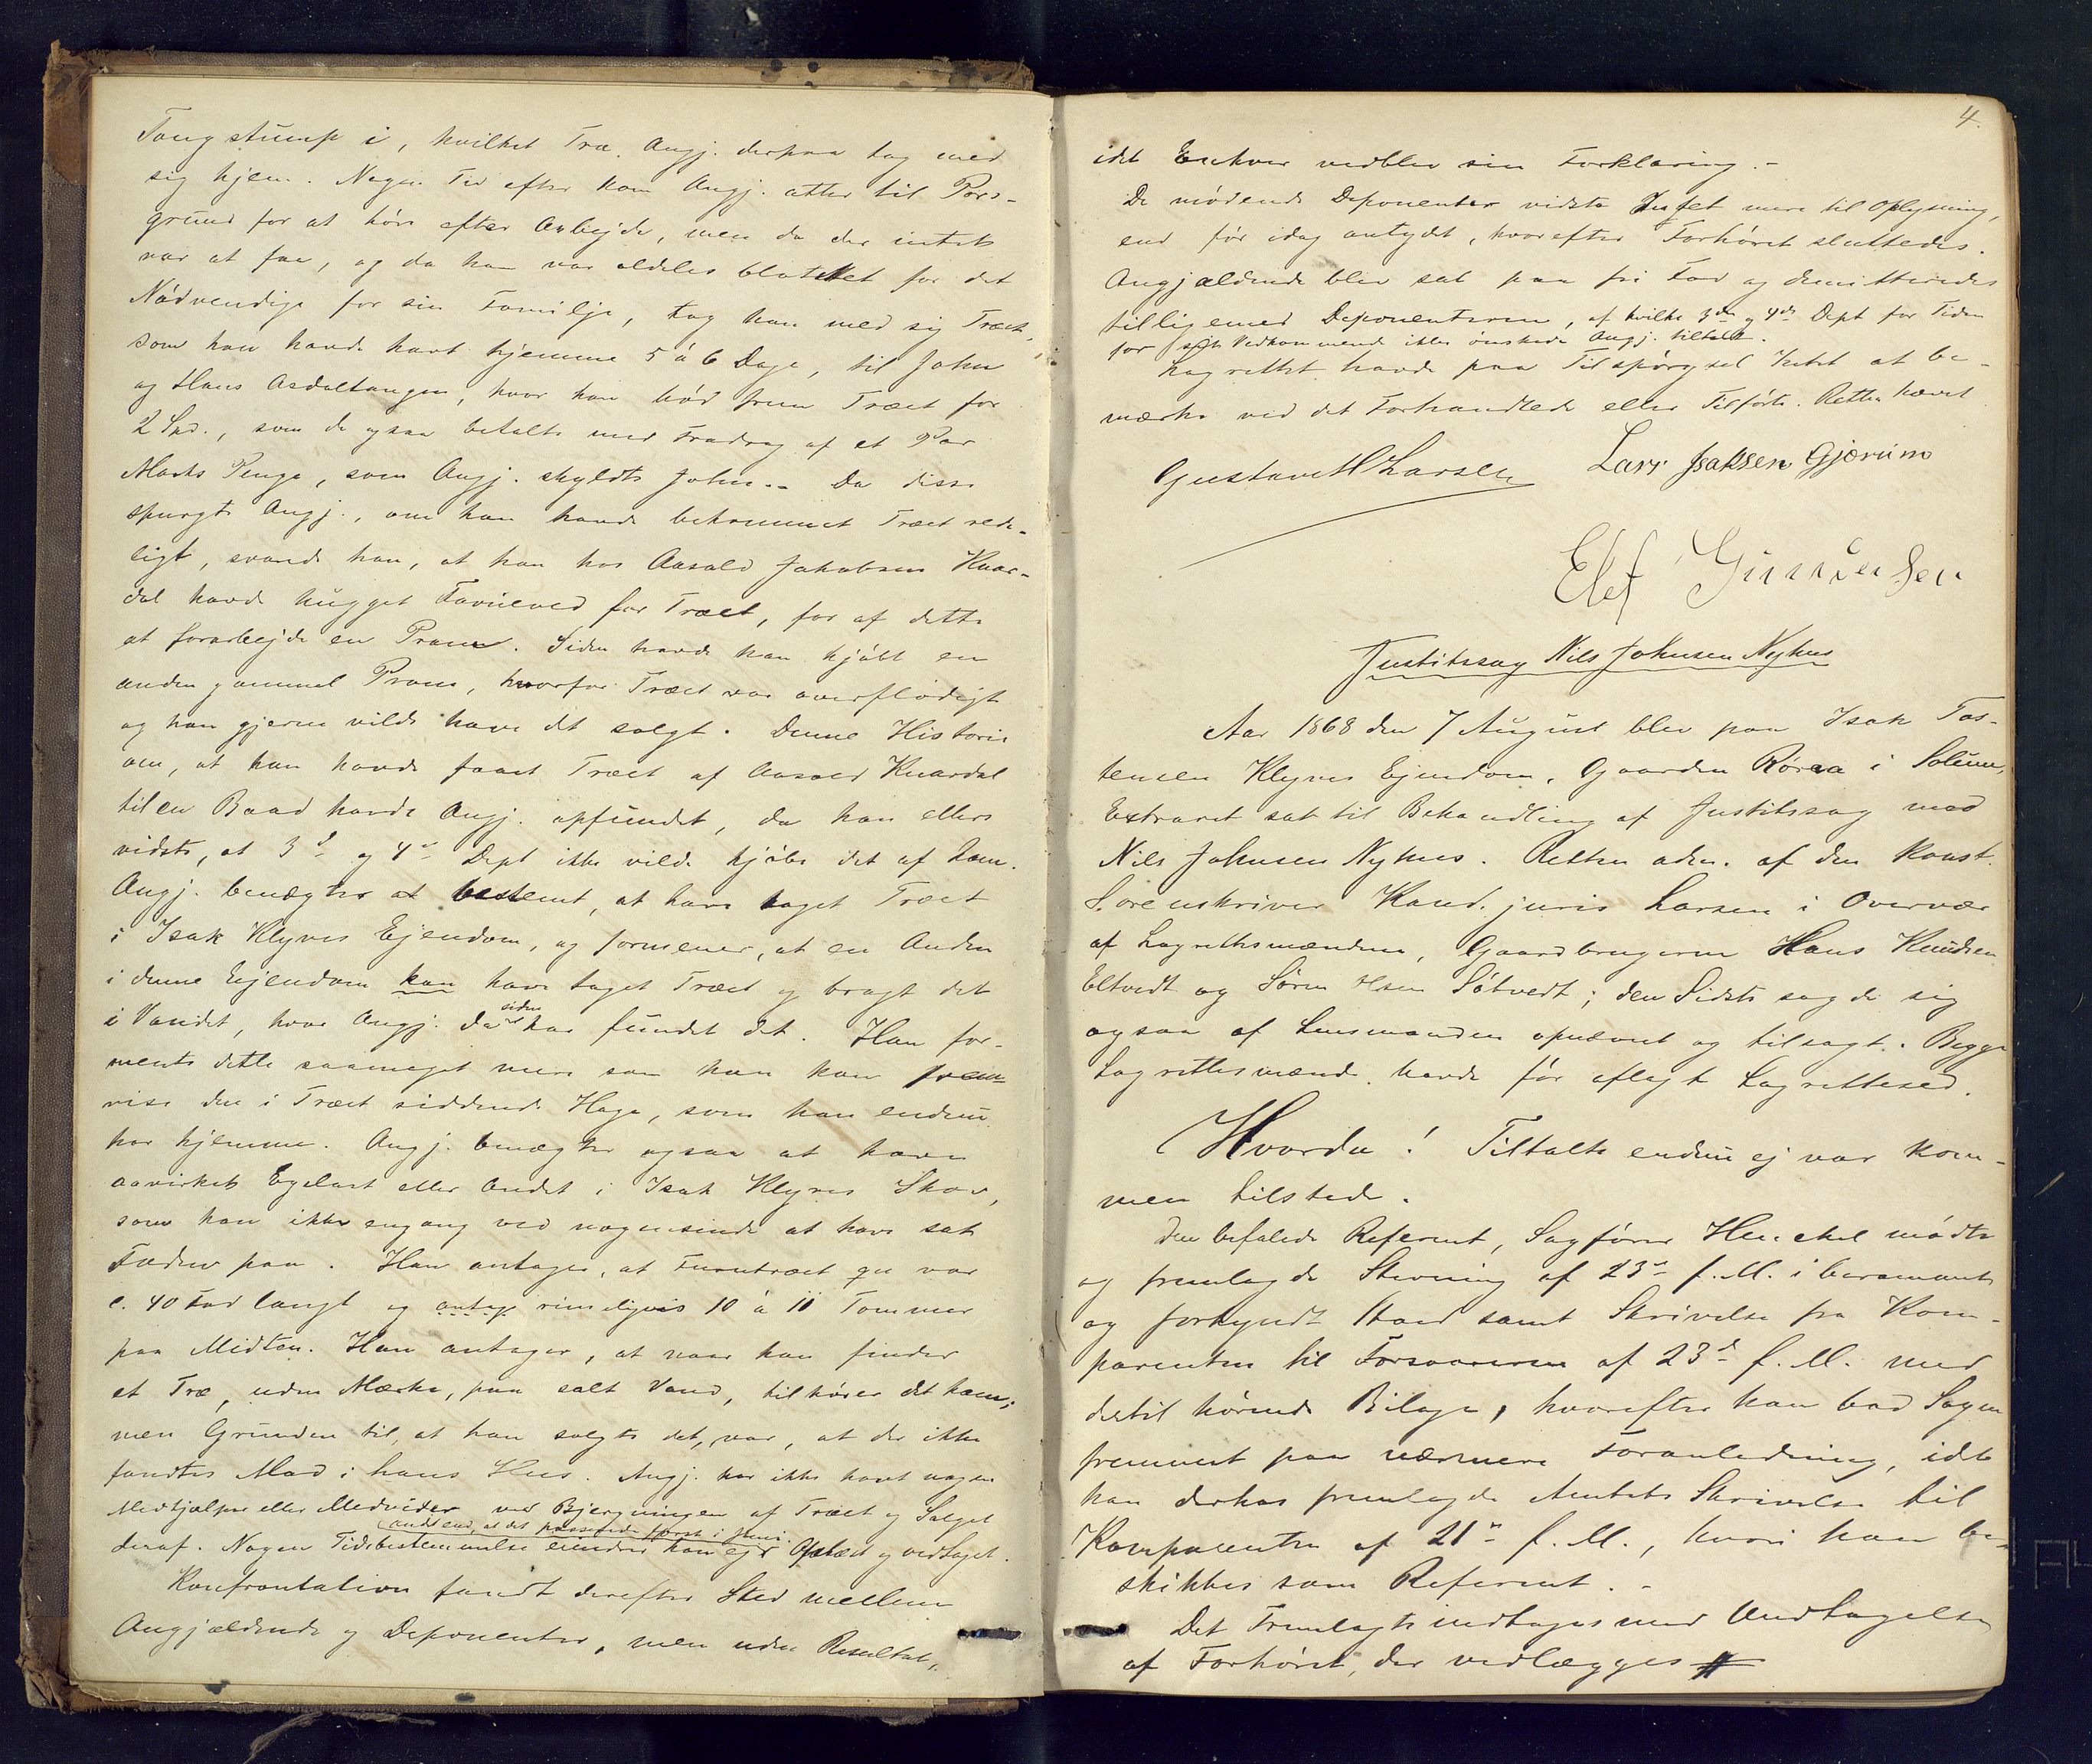 Tougstump i, hvilket Træ Angj. derpaa tog med
sig hjem. Nogen Tid efter kom Angj. atter til Pors-
grund for at høre efter Arbejde, men da der intet
var at faa, og da han var aldeles blottet for det
Nødvendige for sin Familje, tog han med sig Træet,
som han havde havt hjemme 5 à 6 Dage, til John
og Hans Asdaltangen, hvor han bød frem Træet for
2 Spd., som de ogsaa betalte med Fradrag af et Par
Marks Penge, som Angj. skyldte John.- Da disse
spurgte Angj., om han havde bekommet Træet rede-
ligt, svarede han, at han hos Aasold Jakobsen Knar-
dal havde hugget Favneved for Træet, for af dette
at forarbejde en Pram. Siden havde han kjøbt en
anden gammel Pram, hvorfor Træet var overflødigt
og han gjerne vilde have det solgt. Denne Historie
om, at han havde faaet Træet af Aasold Knardal
til en Baad havde Angj. opfundet, da han ellers
vidste, at 3d og 4d Dept ikke vilde kjøbe det af ham.
Angj. benægter at bestemt, at have taget Træet
i Isak Klyves Ejendom, og formener, at en Anden
i denne Ejendom kan have taget Træet og bragt det
i Vandet, hvor Angj. da siden har fundet det. Han for-
mente dette saameget mere som han kan frem-
vise den i Træet siddende Hage, som han endnu
har hjemme. Angj. benægter ogsaa at have
aavirket Egelast eller Andet i Isak Klyves Skov,
som han ikke engang ved nogensinde at have sat
Foden paa. Han antager, at Furutræet qu var
c. 40 Fod langt og antag rimeligvis 10 à 11 Tommer
paa Midten. Han antager, at naar han finder
et Træ, uden Mærke, paa salt Vand, tilhører det ham;
men Grunden til, at han solgte det, var, at der ikke
fandtes Mad i hans Hus. Angj. har ikke havt nogen
Medhjælper eller Medvider ved Bjergningen af Træet og Salget
(andet end, at det passerede først i Juni
deraf. Nogen Tidsbestemmelse erindrer han ej. Oplæst og vedtaget.
Konfrontation fandt derefter Sted mellem
Angjældende og Deponenter, men uden Resultat,
4.
idet Enhver vedblev sin Forklaring.-
De mødende Deponenter vidste Intet mere til Oplysning,
end før idag antydet, hvorefter Forhøret sluttedes.
Angjældende blev sat paa fri Fod og demitteredes
tilligemed Deponenterne, af hvilke 3de og 4de Dept for Tiden
for sit Vedkommende ikke ønskede Angj. tiltalt.
Lagrettet havde paa Tilspørgsel Intet at be-
mærke ved det Forhandlede eller Tilførte. Retten hævet
Gustav H Larsen Lars Isaksen Gjærum
Elef Gunnersen
Justitssag Nils Johnsen Nyhus
Aar 1868 den 7 August blev paa Isak Tos-
tensen Klyves Ejendom, Gaarden Røraa i Solum,
Extraret sat til Behandling af Justitssag mod
Nils Johnsen Nyhus. Retten adm. af den konst.
Sorenskriver Kand. juris Larsen i Overvær
af Lagrettsmændene, Gaardbrugerne Hans Knudsen
Eltvedt og Søren Olsen Søtvedt; den Sidste sagde sig
ogsaa af Lensmanden opnævnt og tilsagt. Begge
Lagrettesmænd havde før aflagt Lagretteséd.
Hvorda! Tiltalte endnu ej var kom-
men tilstede.
Den befalede Referent, Sagfører Henckel mødte
og fremlagde Stevning af 23de f. M. i beramment
og forkyndt Stand samt Skrivelse fra Kom-
parenten til Forsvareren af 23de f. M. med
dertil hørende Bilage, hvorefter han bad Sagen
fremmet paa nærmere Foranledning, idet
han derhos fremlagde Amtets Skrivelse til
Komparenten af 21de f. M., hvori han be-
skikkes som Referent.-
Det Fremlagte indtages med Undtagelse
af Forhøret, der vedlægges #